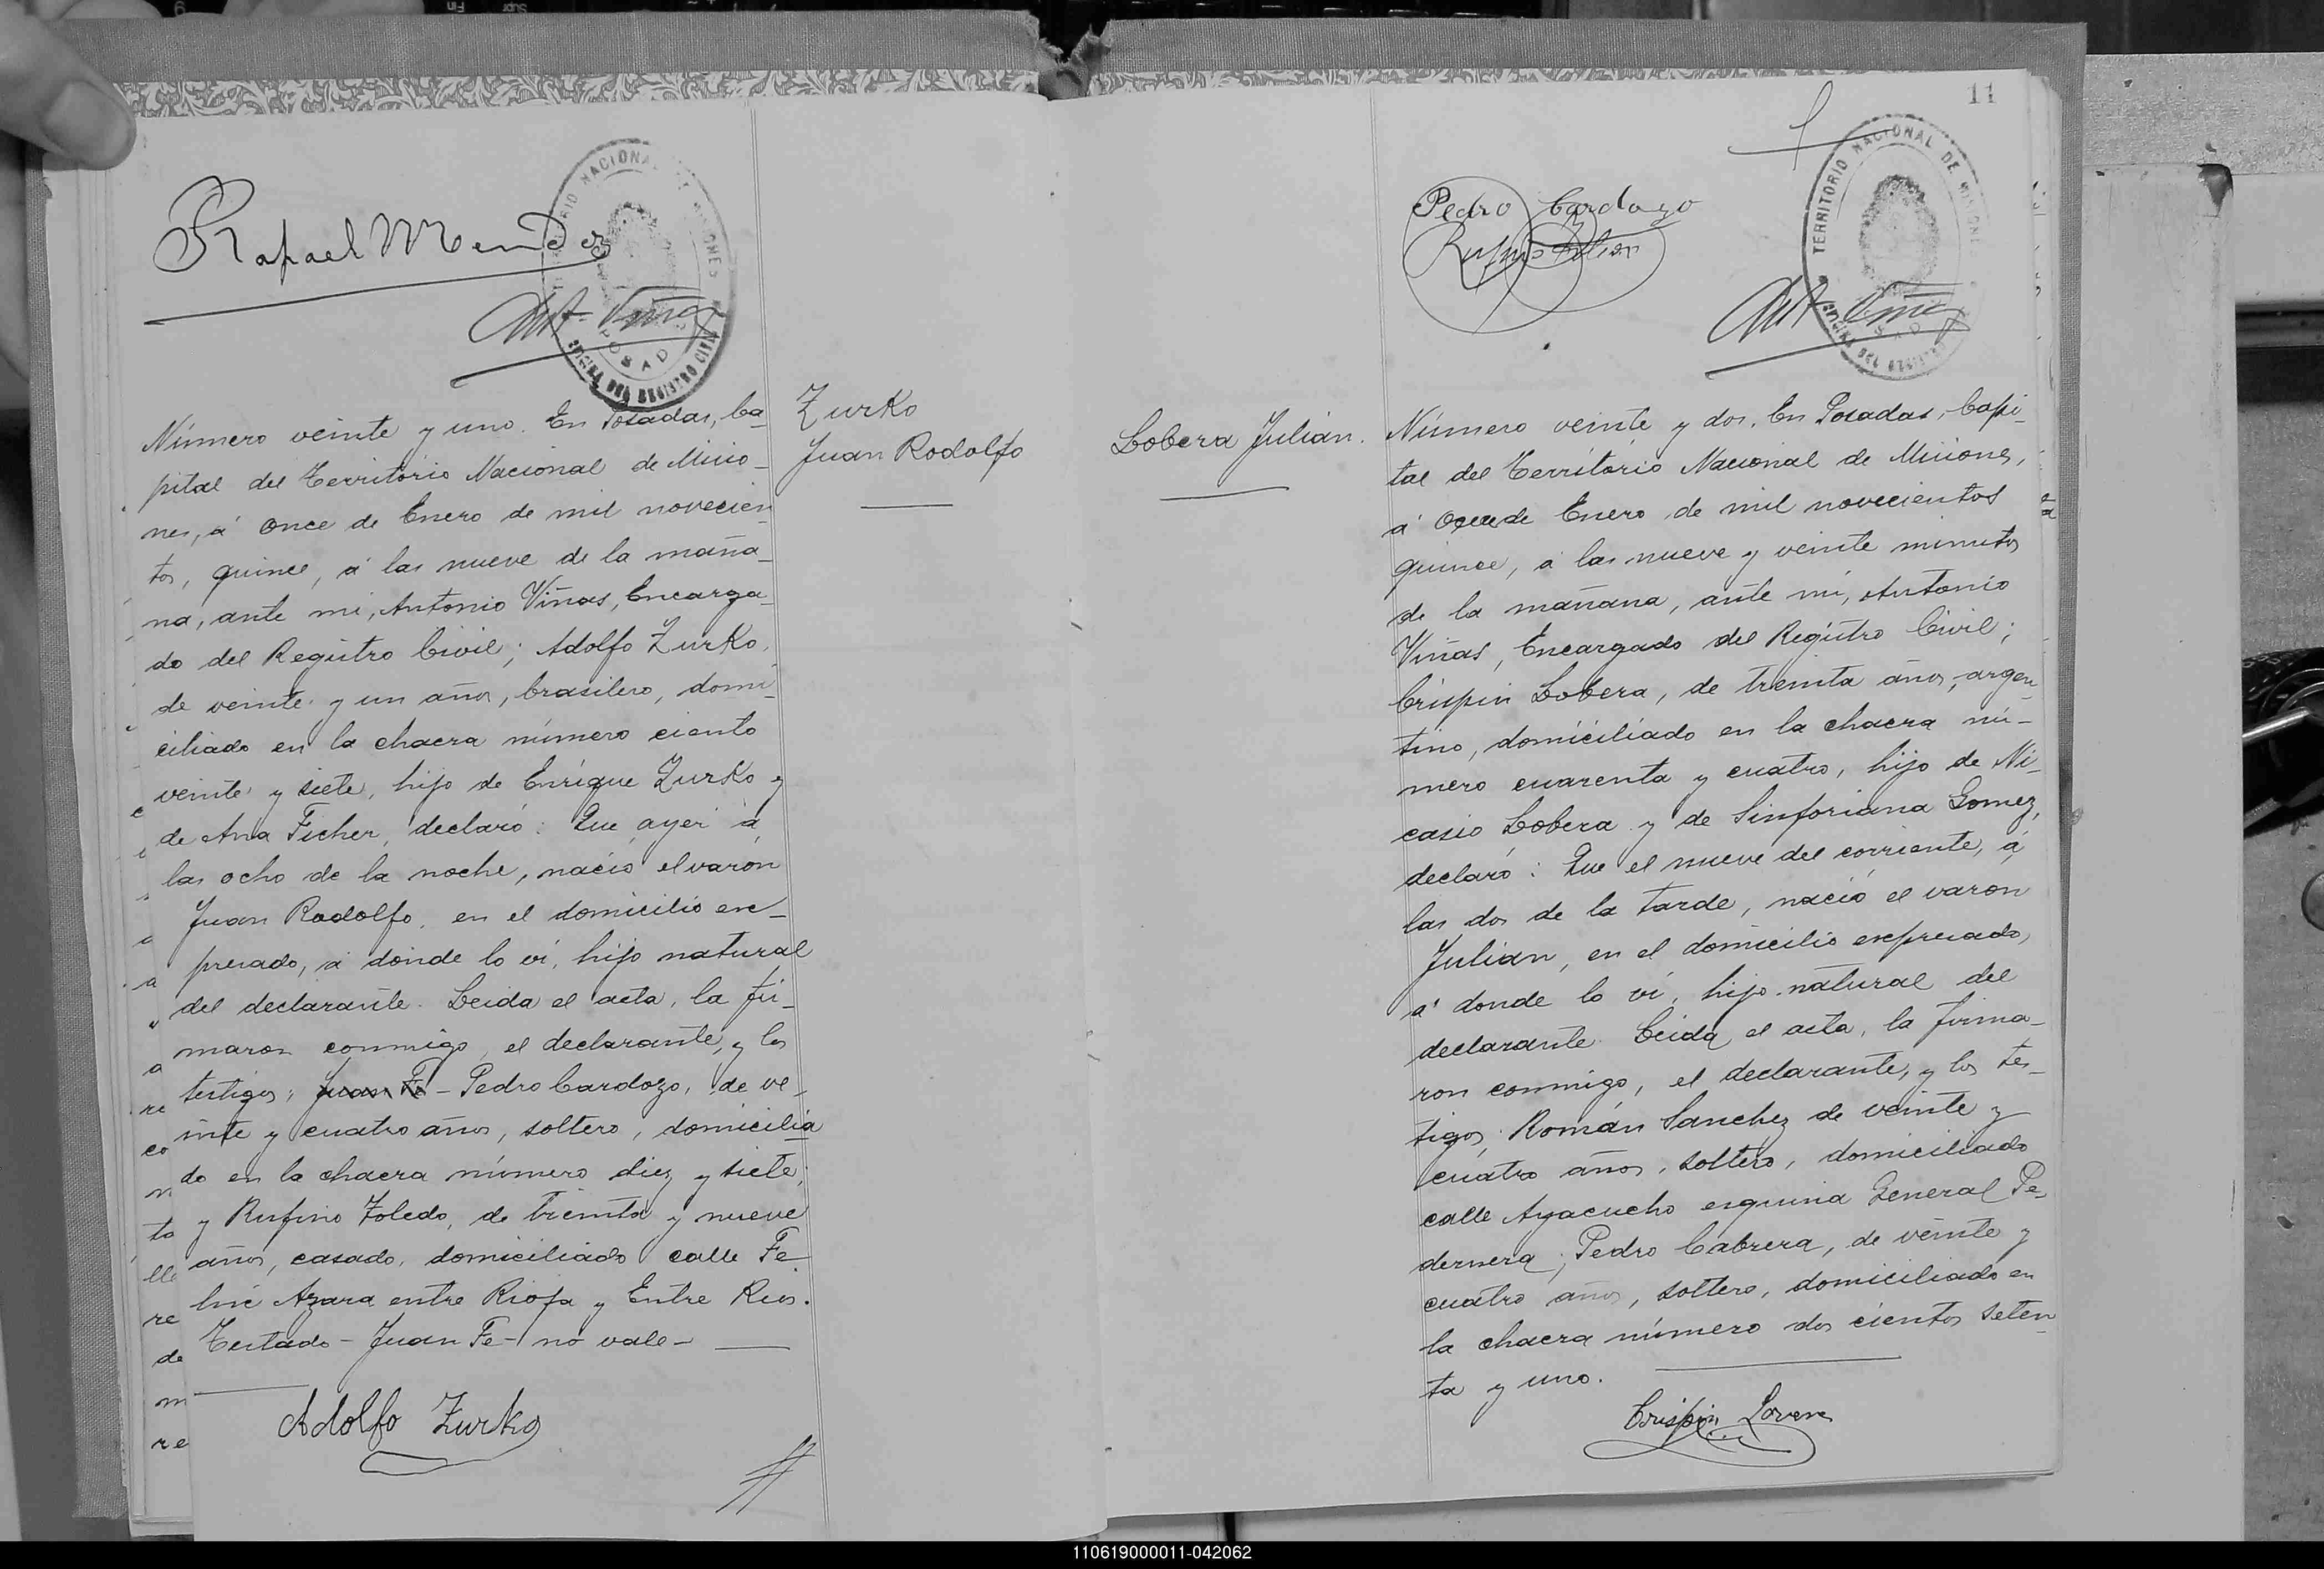 Rafael Mendez
TERRITORIO NACIONAL DE MISIONES
POSADAS
OFICINA DEL REGISTRO CIVIL
Ant. Viñas
Número veinte y uno. En Posadas, Ca_
pital del Territorio Nacional de Misio_
nes, á once de Enero de mil novecien_
tos, quince, á las nueve de la maña_
na, ante mí, Antonio Viñas, Encarga_
do del Registro Civil; Adolfo Zurko,
de veinte y un años, brasilero, domi_
ciliado en la chacra número ciento
veinte y siete, hijo de Enrique Zurko y
de Ana Ficher, declaró: Que ayer á
las ocho de la noche, nació el varón
Juan Rodolfo, en el domicilio ex_
presado, á donde lo ví, hijo natural
del declarante. Leida el acta, la fir_
maron conmigo, el declarante, y los
testigos; Juan Fe - Pedro Cardozo, de ve_
inte y cuatro años, soltero, domicilia
do en la chacra número diez y siete;
y Rufino Toledo, de treinta y nueve
años, casado, domiciliado calle Fe_
lix Azara entre Rioja y Entre Rios.
Testado - Juan Fe - no vale -
Adolfo Zurko
Zurko
Juan Rodolfo
11
Pedro Cardozo
TERRITORIO NACIONAL DE MISIONES
OFICINA DEL REGISTRO
Ant. Viñas
Lobera Julián.
Número veinte y dos. En Posadas, Capi_
tal del Territorio Nacional de Misiones,
á once de Enero de mil novecientos
quince, á las nueve y veinte minutos
de la mañana, ante mí, Antonio
Viñas, Encargado del Registro Civil;
Crispin Lobera, de treinta años, argen_
tino, domiciliado en la chacra nú_
mero cuarenta y cuatro, hijo de Ni_
casio Lobera y de Sinforiana Gomez,
declaró: Que el nueve del corriente, á
las dos de la tarde, nació el varon
Julian, en el domicilio expresado,
á donde lo ví, hijo natural del
declarante. Leida el acta, la firma_
ron conmigo, el declarante, y los tes_
tigos; Román Sanchez de veinte y
cuatro años, soltero, domiciliado
calle Ayacucho esquina General Pe_
dernera; Pedro Cabrera, de veinte y
cuatro años, soltero, domiciliado en
la chacra número dos cientos seten_
ta y uno.
Crispin Lovera
110619000011-042062